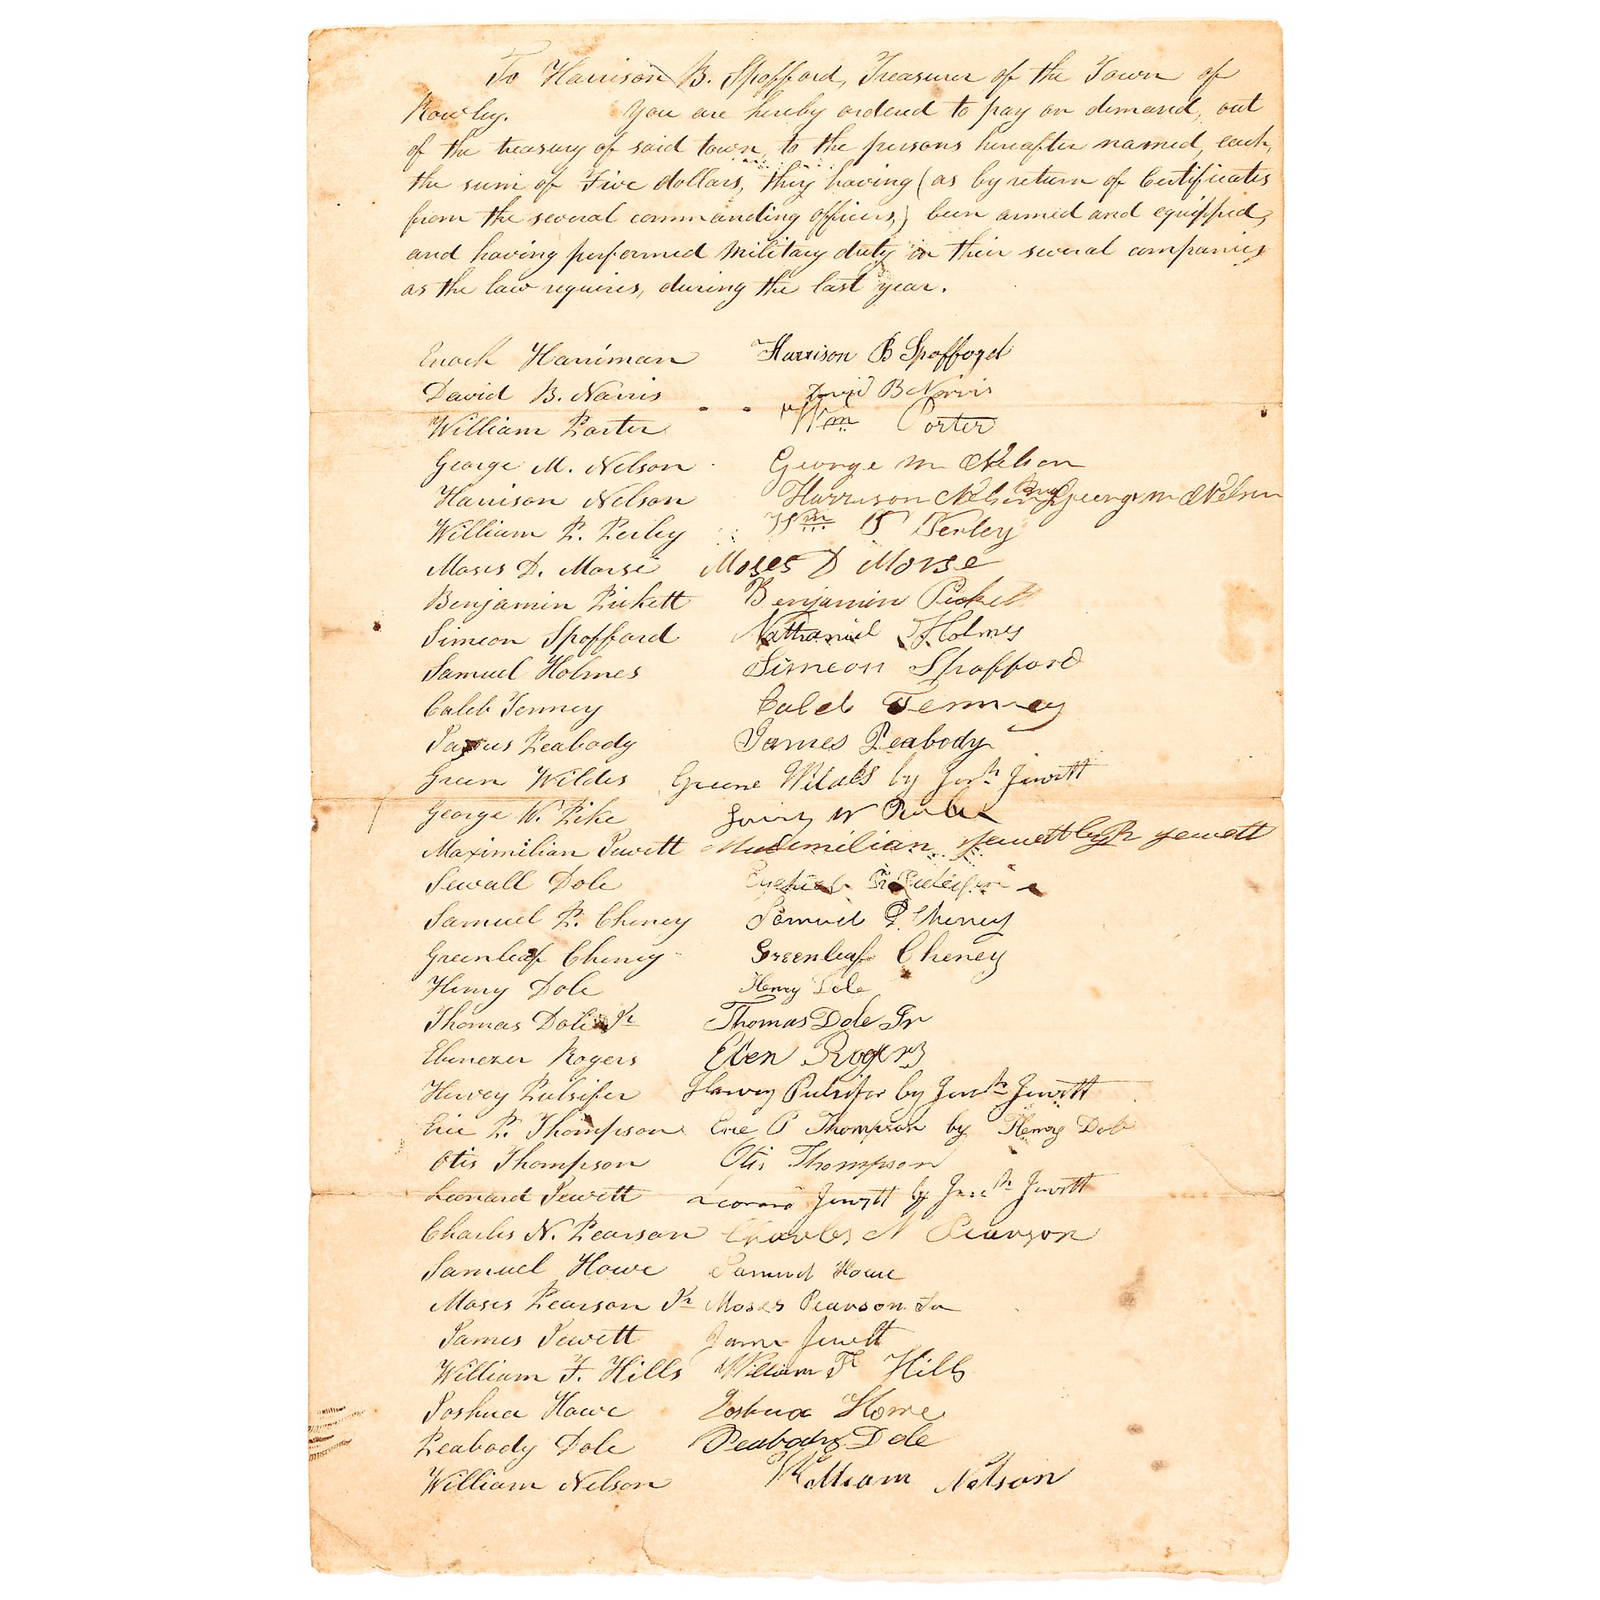 To Harrison B. Spofford, Treasurer of the Town of
Rowley. You are hereby ordered to pay on demand, out
of the treasury of said town, to the persons hereafter named, each,
the sum of Five dollars, they having (as by return of Certificates
from the several commanding officers,) been armed and equipped,
and having performed military duty in their several companies
as the law requires, during the last year.
Enoch Harriman Harrison B Spofford
David B. Norris David B Norris
William Porter Wm Porter
George M. Nelson George M Nelson
Harrison Nelson Harrison Nelson George M Nelson
William P. Perley Wm P Perley
Moses D. Morse Moses D Morse
Benjamin Pickett Benjamin Pickett
Simeon Spofford Nathaniel Holmes
Samuel Holmes Simeon Spofford
Caleb Tenney Caleb Tenney
James Peabody James Peabody
Green Wildes Greene Wildes by Jos.h Jewett
George W. Pike W
Maximilian Jewett Maximilian Jewett by Jewett
Sewall Dole
Samuel P. Cheney Samuel P. Cheney
Greenleaf Cheney Greenleaf Cheney
Henry Dole Henry Dole
Thomas Dole Jr Thomas Dole Jr
Ebenezer Rogers Eben Rogers
Harvey Pulsifer Harvey Pulsifer by Josh Jewett
Eric P. Thompson Eric P Thompson by Henry Dole
Otis Thompson Otis Thompson
Leonard Jewett Leonard Jewett by Josh Jewett
Charles N. Pearson Charles N Pearson
Samuel Howe Samuel Howe
Moses Pearson Jr Moses Pearson Jr
James Jewett Jame Jewett
William F. Hills William F Hills
Joshua Howe Joshua Howe
Peabody Dole Peabody Dole
William Nelson William Nelson